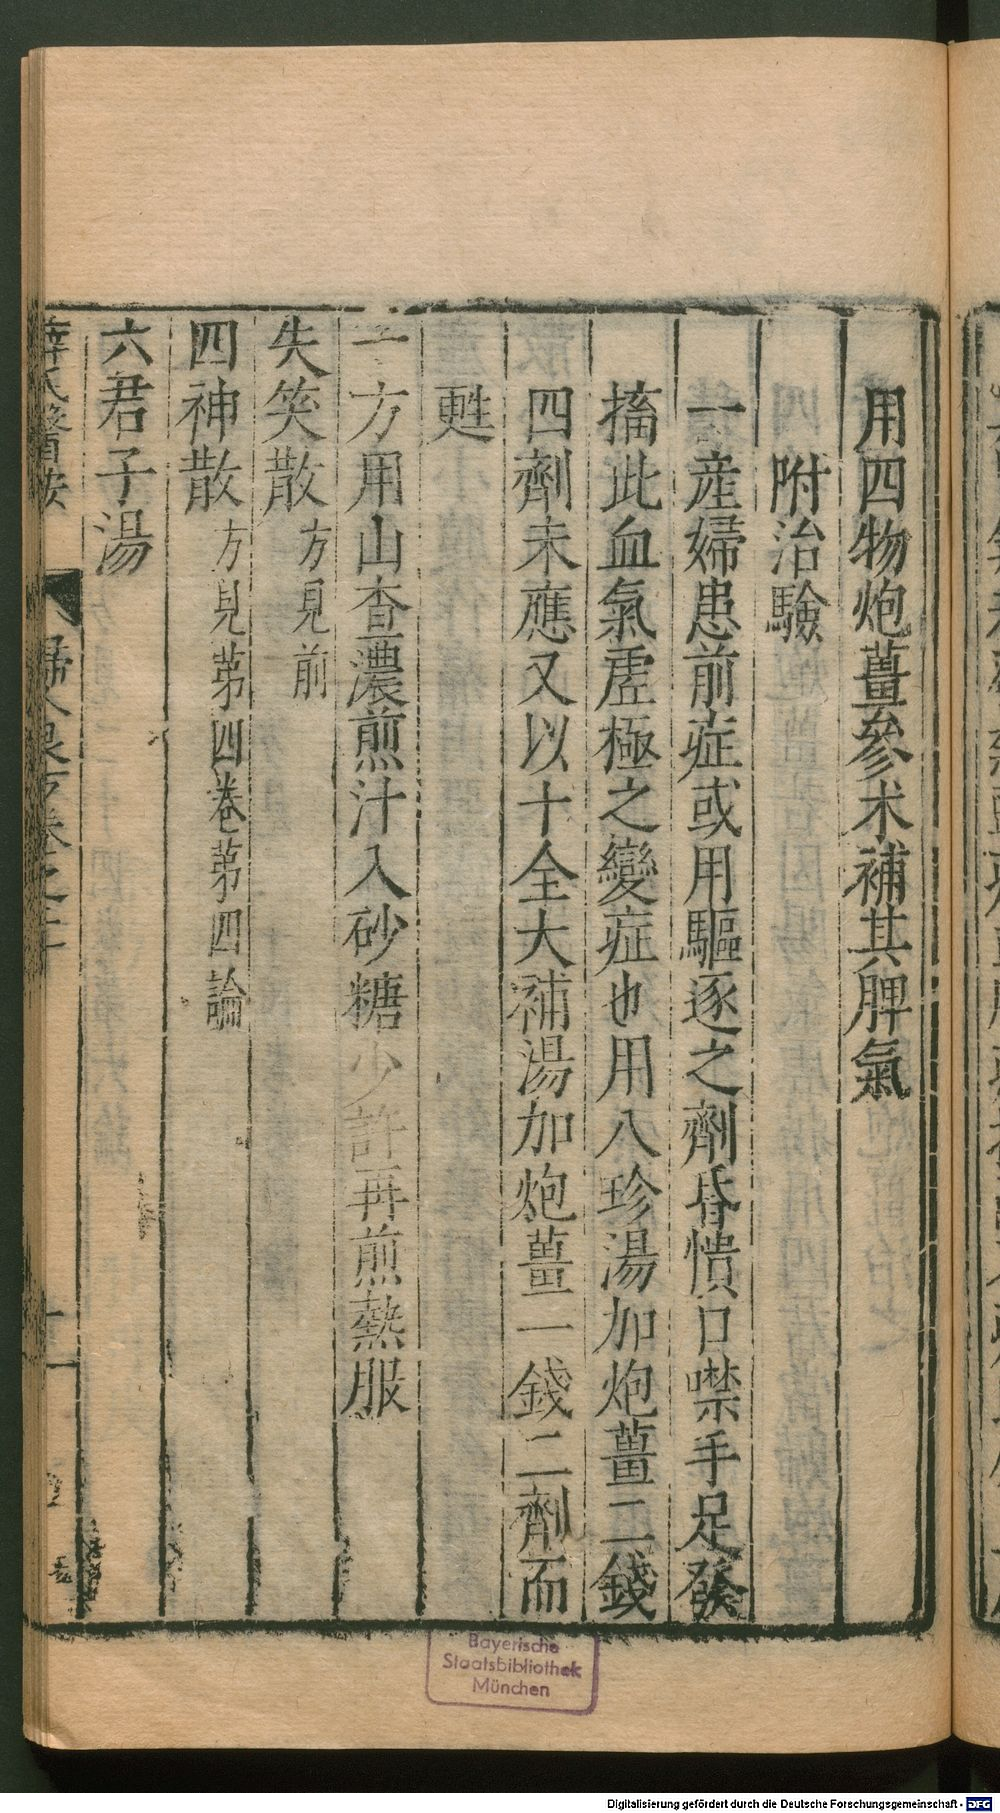 用四物炮薑參术補其脾氣
附治驗
一産婦患前症或用驅逐之劑昏憒口噤手足發
搐此血氣虛極之變症也用八珍湯加炮薑二錢
四劑未應又以十全大補湯加炮薑一錢二劑而
甦
一方用山查濃煎汁入砂糖少許再煎熱服
失笑散方見前
四神散方見第四卷第四論
六君子湯
薛氏醫按
婦人良方卷之二十
Bayerische
Staatsbibliothek
München
Digitalisierung gefördert durch die Deutsche Forschungsgemeinschaft - DFG